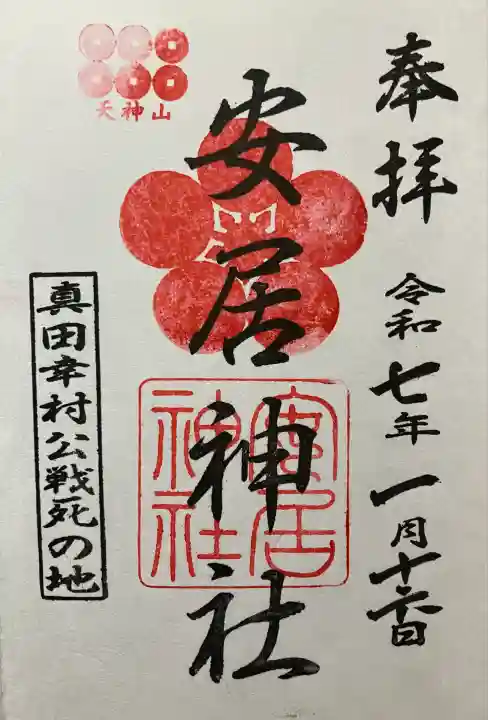 奉拝
令和七年一月十六日
安居神社
安居神社
天神山
真田幸村公戦死の地